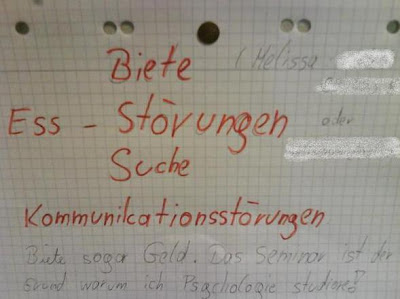 Biete (Melissa
Ess - Störungen oder
Suche
Kommunikationsstörungen
Biete sogar Geld. Das Seminar ist der
Grund warum ich Psychologie studiere!